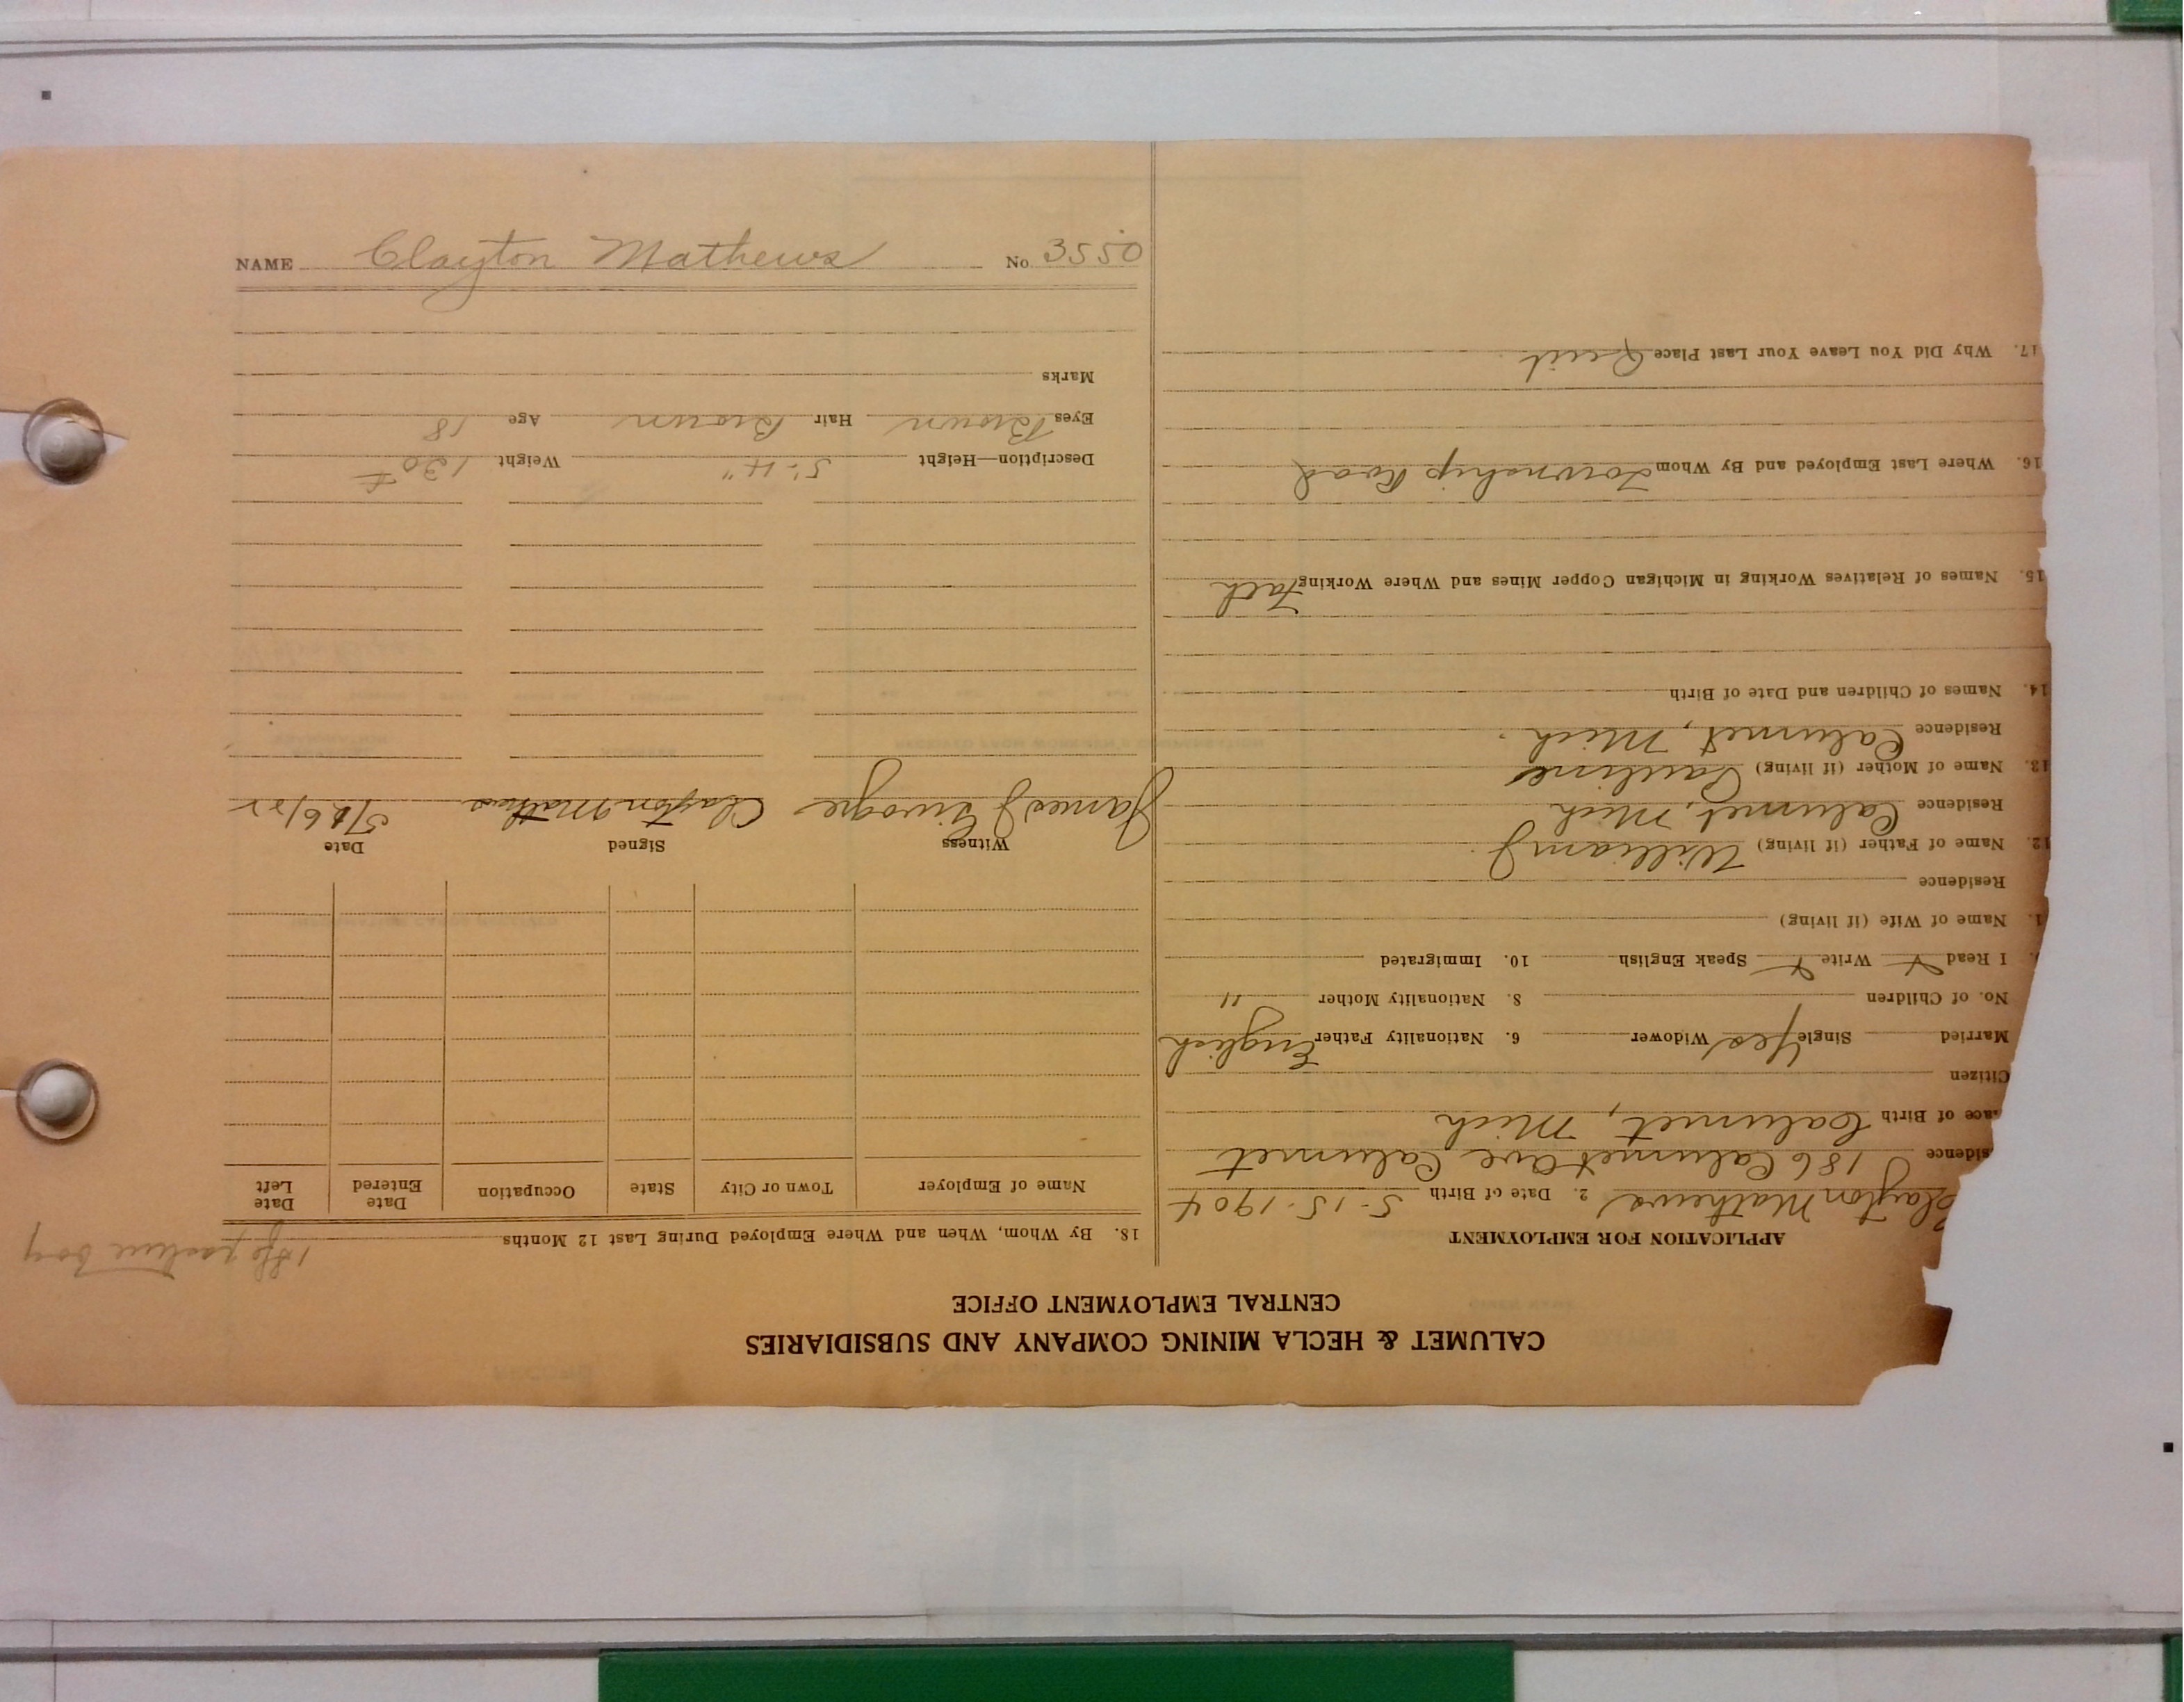 CALUMET & HECLA MINING COMPANY AND SUBSIDIARIES
CENTRAL EMPLOYMENT OFFICE
APPLICATION FOR EMPLOYMENT
Clayton Mathews 2. Date of Birth 5-15-1904
sidence 186 Calumet Ave Calumet
ace of Birth Calumet, Mich
Citizen
Married Single Yes Widower 6. Nationality Father English
No. of Children 8. Nationality Mother "
I Read Write Speak English 10. Immigrated
1. Name of Wife (if living)
Residence
12. Name of Father (if living) William J.
Residence Calumet, Mich
13. Name of Mother (if living) Pauline
Residence Calumet, Mich.
14. Names of Children and Date of Birth
15. Names of Relatives Working in Michigan Copper Mines and Where Working
16. Where Last Employed and By Whom Township Road
17. Why Did You Leave Your Last Place Quit
boy
18. By Whom, When and Where Employed During Last 12 Months
Name of Employer Town or City State Occupation Date Entered Date Left
Witness Signed Date
James J Clayton Mathews
Description—Height 5'-4" Weight 130 #
Eyes Brown Hair Brown Age 18
Marks
NAME Clayton Mathews No. 3550